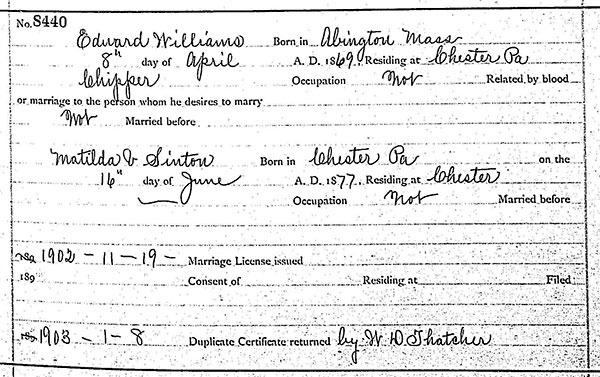 No. S440
Edward Williams Born in Abington Mass
8" day of April A. D. 1869. Residing at Chester Pa
Chipper Occupation Not Related by blood
or marriage to the person whom he desires to marry
Not Married before
Matilda V Sinton Born in Chester Pa on the
16" day of June A. D. 1877. Residing at Chester
Occupation Not Married before
189 1902 - 11 - 19 - Marriage License issued
189 Consent of Residing at Filed
189 1903 - 1 - 8 Duplicate Certificate returned by W. D. Thatcher